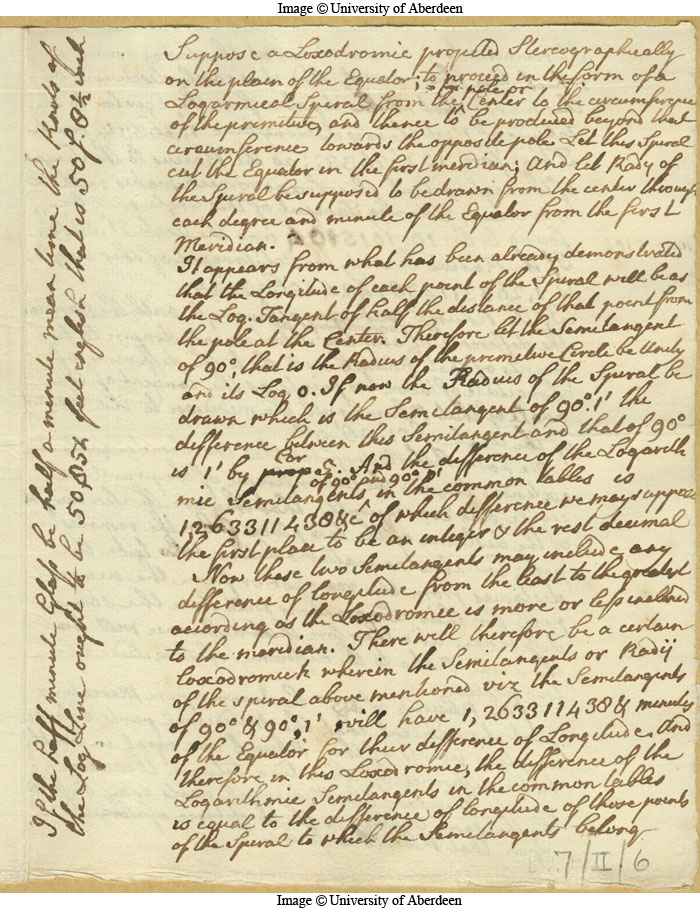 Image © University of Aberdeen
Suppose a Loxodromic projected Stereographically
on the plain of the Equator; to proceed in the form of a
Logarmical Spiral from the pole or Center to the circumference
of the premitive, and thence to be produced beyond that
circumference towards the opposite pole. Let this Spiral
cut the Equator in the first meridian; And let Rady of
the Spiral be supposed to be drawn from the center through
each degree and minute of the Equator from the first
Meridian.
It appears from what has been already demonstrated
that the Longitude of each point of the Spiral will be as
the Log. Tangent of half the distance of that point from
the pole at the Center. Therefore let the Semitangent
of 90°, that is the Radius of the premetive Circle be Unity
and its Log 0. If now the Radius of the Spiral be
drawn which is the Semitangent of 90°.1' the
difference between this Semitangent and that of 90°
is 1' by Cor And the difference of the Logarith
mic Semitangents of 90° and 90°,1' in the common tables is
1,263311438&c of which difference we may suppose
the first place to be an integer & the rest decimal
Now these two Semitangents may include any
difference of longitude from the least to the greatest
according as the Loxodromic is more or less inclined
to the meridian. There will therefore be a certain
Loxodromick wherein the Semitangents or Radij
of the spiral above mentioned viz the Semitangents
of 90° & 90°,1' will have 1,263311438& minutes
of the Equator for their difference of Longitude. And
therefore in this Loxodromic, the difference of the
Logarithmic Semitangents in the common tables
is equal to the difference of longitude of those points
of the Spiral to which the Semitangents belong
7/II/6
If the half minute Glass be half a minute mean time the Knots of
the Log Line ought to be 50, feet english that is 50 f. 8½ inch
Image © University of Aberdeen